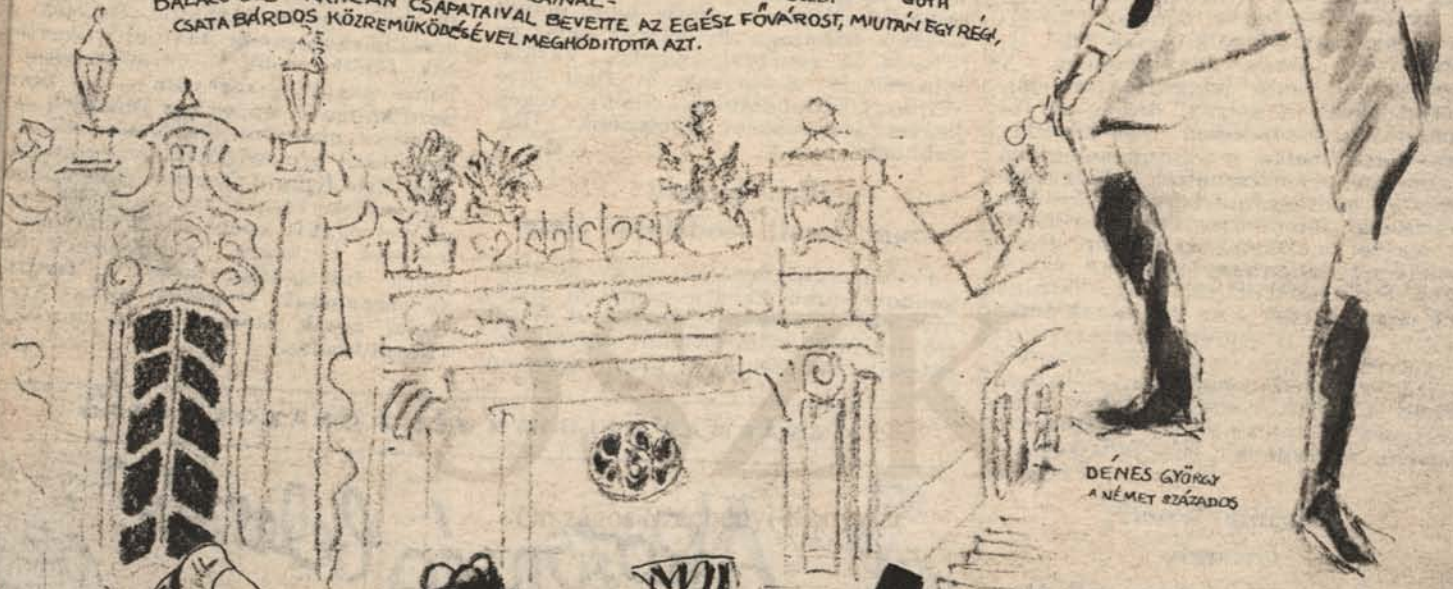 CSAPATAIVAL BEVETTE AZ EGÉSZ FŐVÁROST, MIUTÁN EGY RÉGI,
CSATA BÁRDOS KÖZREMŰKÖDÉSÉVEL MEGHÓDITOTTA AZT.
OSZK
DÉNES GYÖRGY
A NÉMET SZÁZADOS